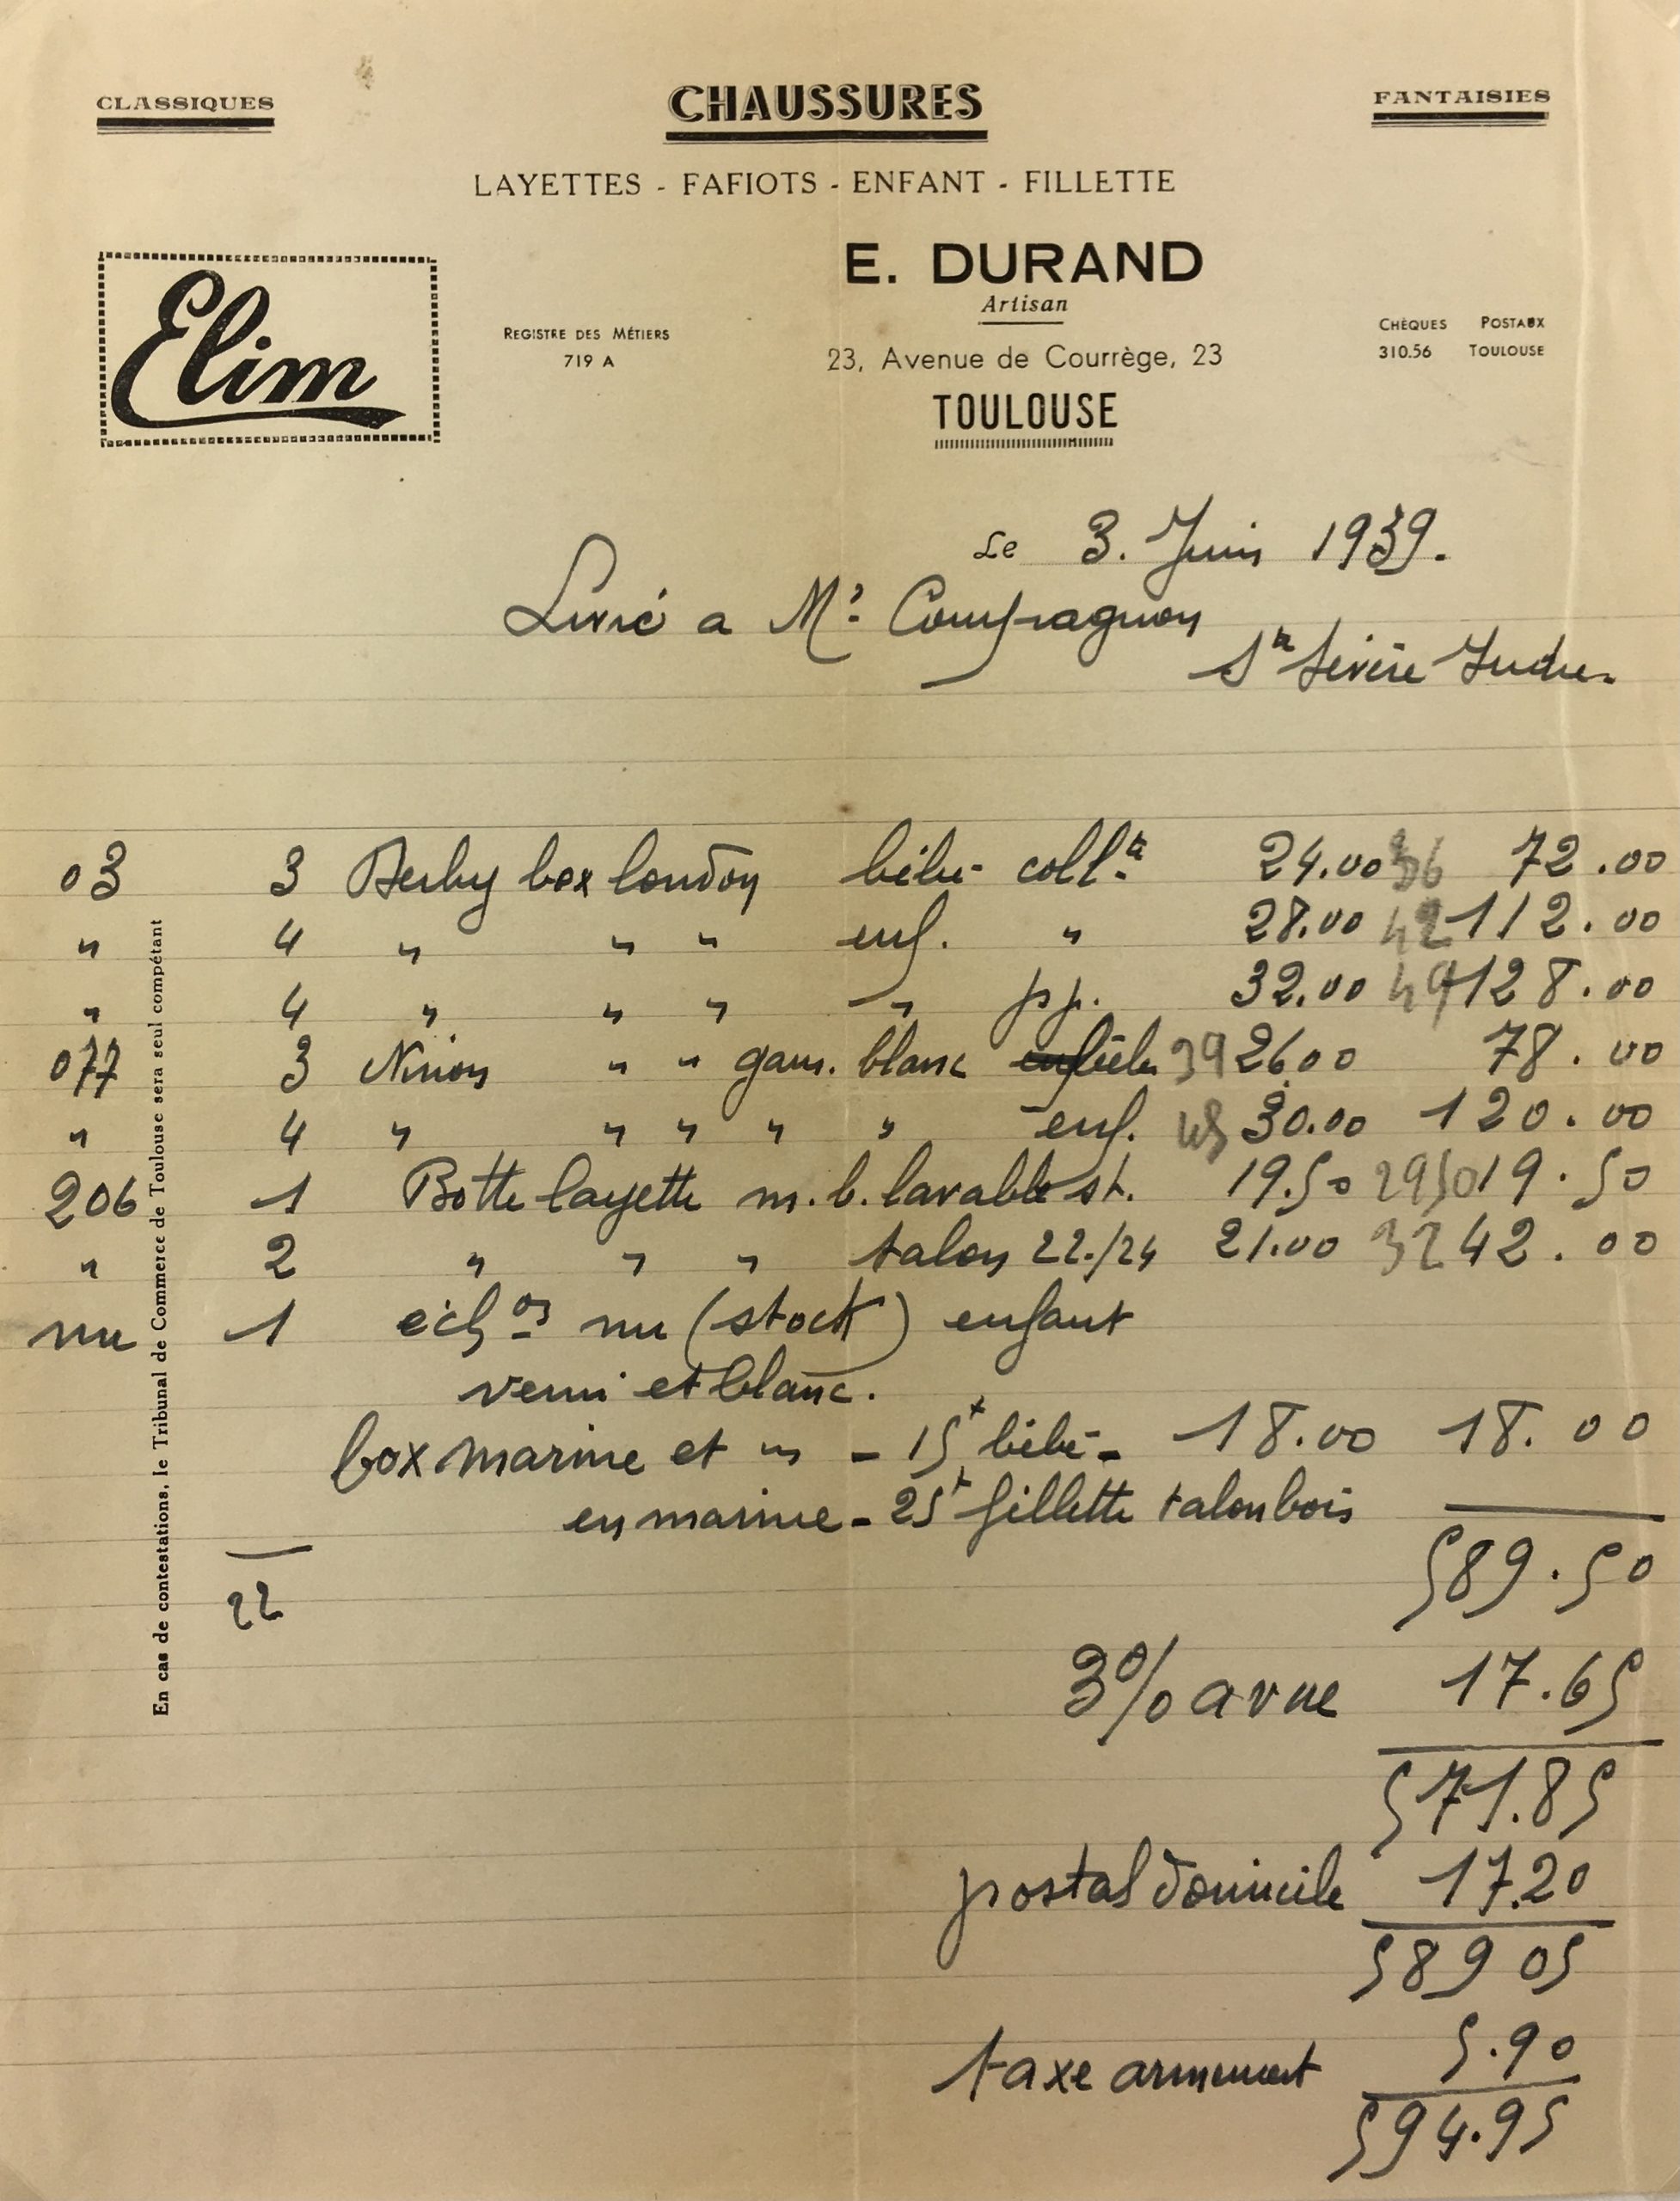 CLASSIQUES
CHAUSSURES
FANTAISIES
LAYETTES - FAFIOTS - ENFANT - FILLETTE
Elim
E. DURAND
Artisan
REGISTRE DES MÉTIERS
719 A
23, Avenue de Courrège, 23
TOULOUSE
CHÈQUES POSTAUX
310.56 TOULOUSE
Le 3. Juin 1939.
Livré a Mr Compagnon
Ste Sévère Indre.
03 3 Derby box london bébé - coll. 24.00 36 72.00
" 4 " " " enf. " 28.00 42 112.00
" 4 " " " " pp. 32.00 49 128.00
077 3 Ninon " " garn. blanc bébé 39 26.00 78.00
" 4 " " " " " enf. 45 30.00 120.00
206 1 Botte layette m. b. lavable st. 19.50 2950 19.50
" 2 " " " talon 22./24 21.00 32 42.00
nu 1 éch on nu (stock) enfant
verni et blanc.
box marine et " - 15 + bébé - 18.00 18.00
en marine - 25 + fillette talon bois
589.50
22
3% a vue 17.65
571.85
postal domicile 17.20
589 05
taxe armement 5.90
594.95
En cas de contestations, le Tribunal de Commerce de Toulouse sera seul compétant